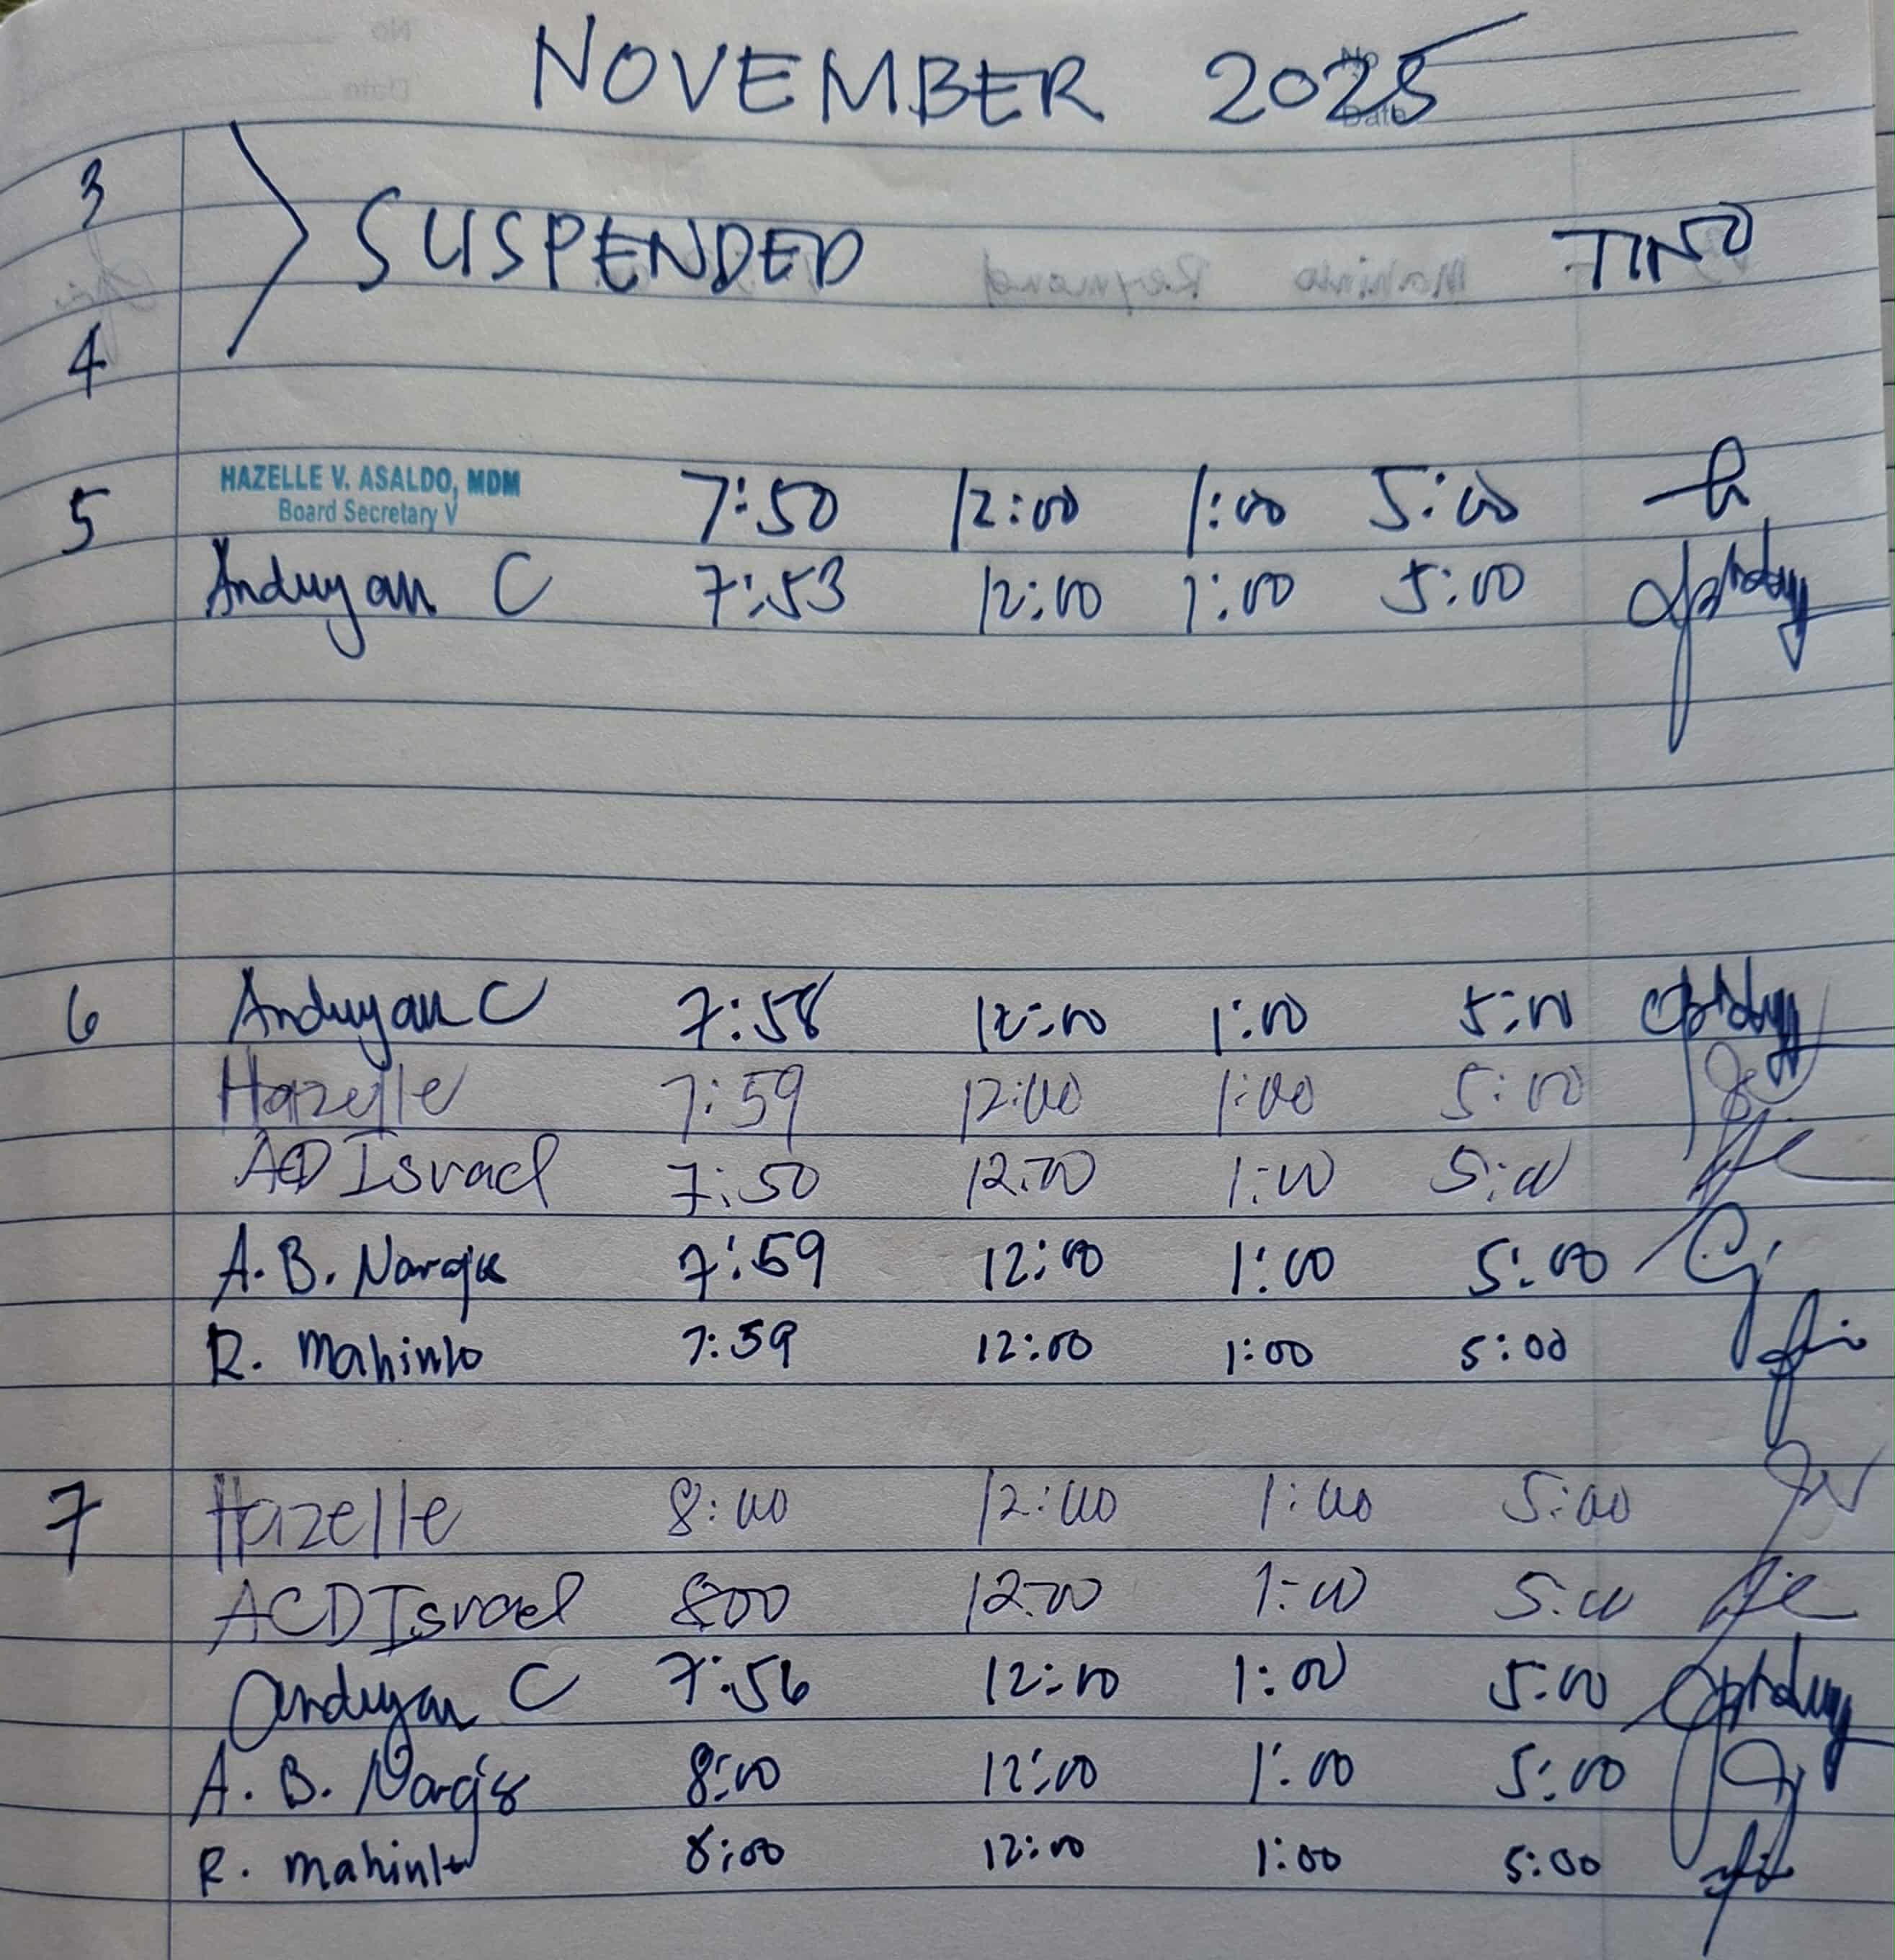 No
Date
NOVEMBER 2025
3
SUSPENDED TINO
4
5 HAZELLE V. ASALDO, MDM
Board Secretary V
7:50 12:00 1:00 5:00
Anduyan C 7:53 12:00 1:00 5:00
6 Anduyan C 7:58 12:00 1:00 5:00
Hazelle 7:59 12:00 1:00 5:00
ACD Israel 7:50 12:00 1:00 5:00
A. B. 7:59 12:00 1:00 5:00
R. Mahinlo 7:59 12:00 1:00 5:00
7 Hazelle 8:00 12:00 1:00 5:00
ACD Israel 800 12:00 1:00 5:00
Anduyan C 7:56 12:00 1:00 5:00
A. B. 8:00 12:00 1:00 5:00
R. Mahinlo 8:00 12:00 1:00 5:00